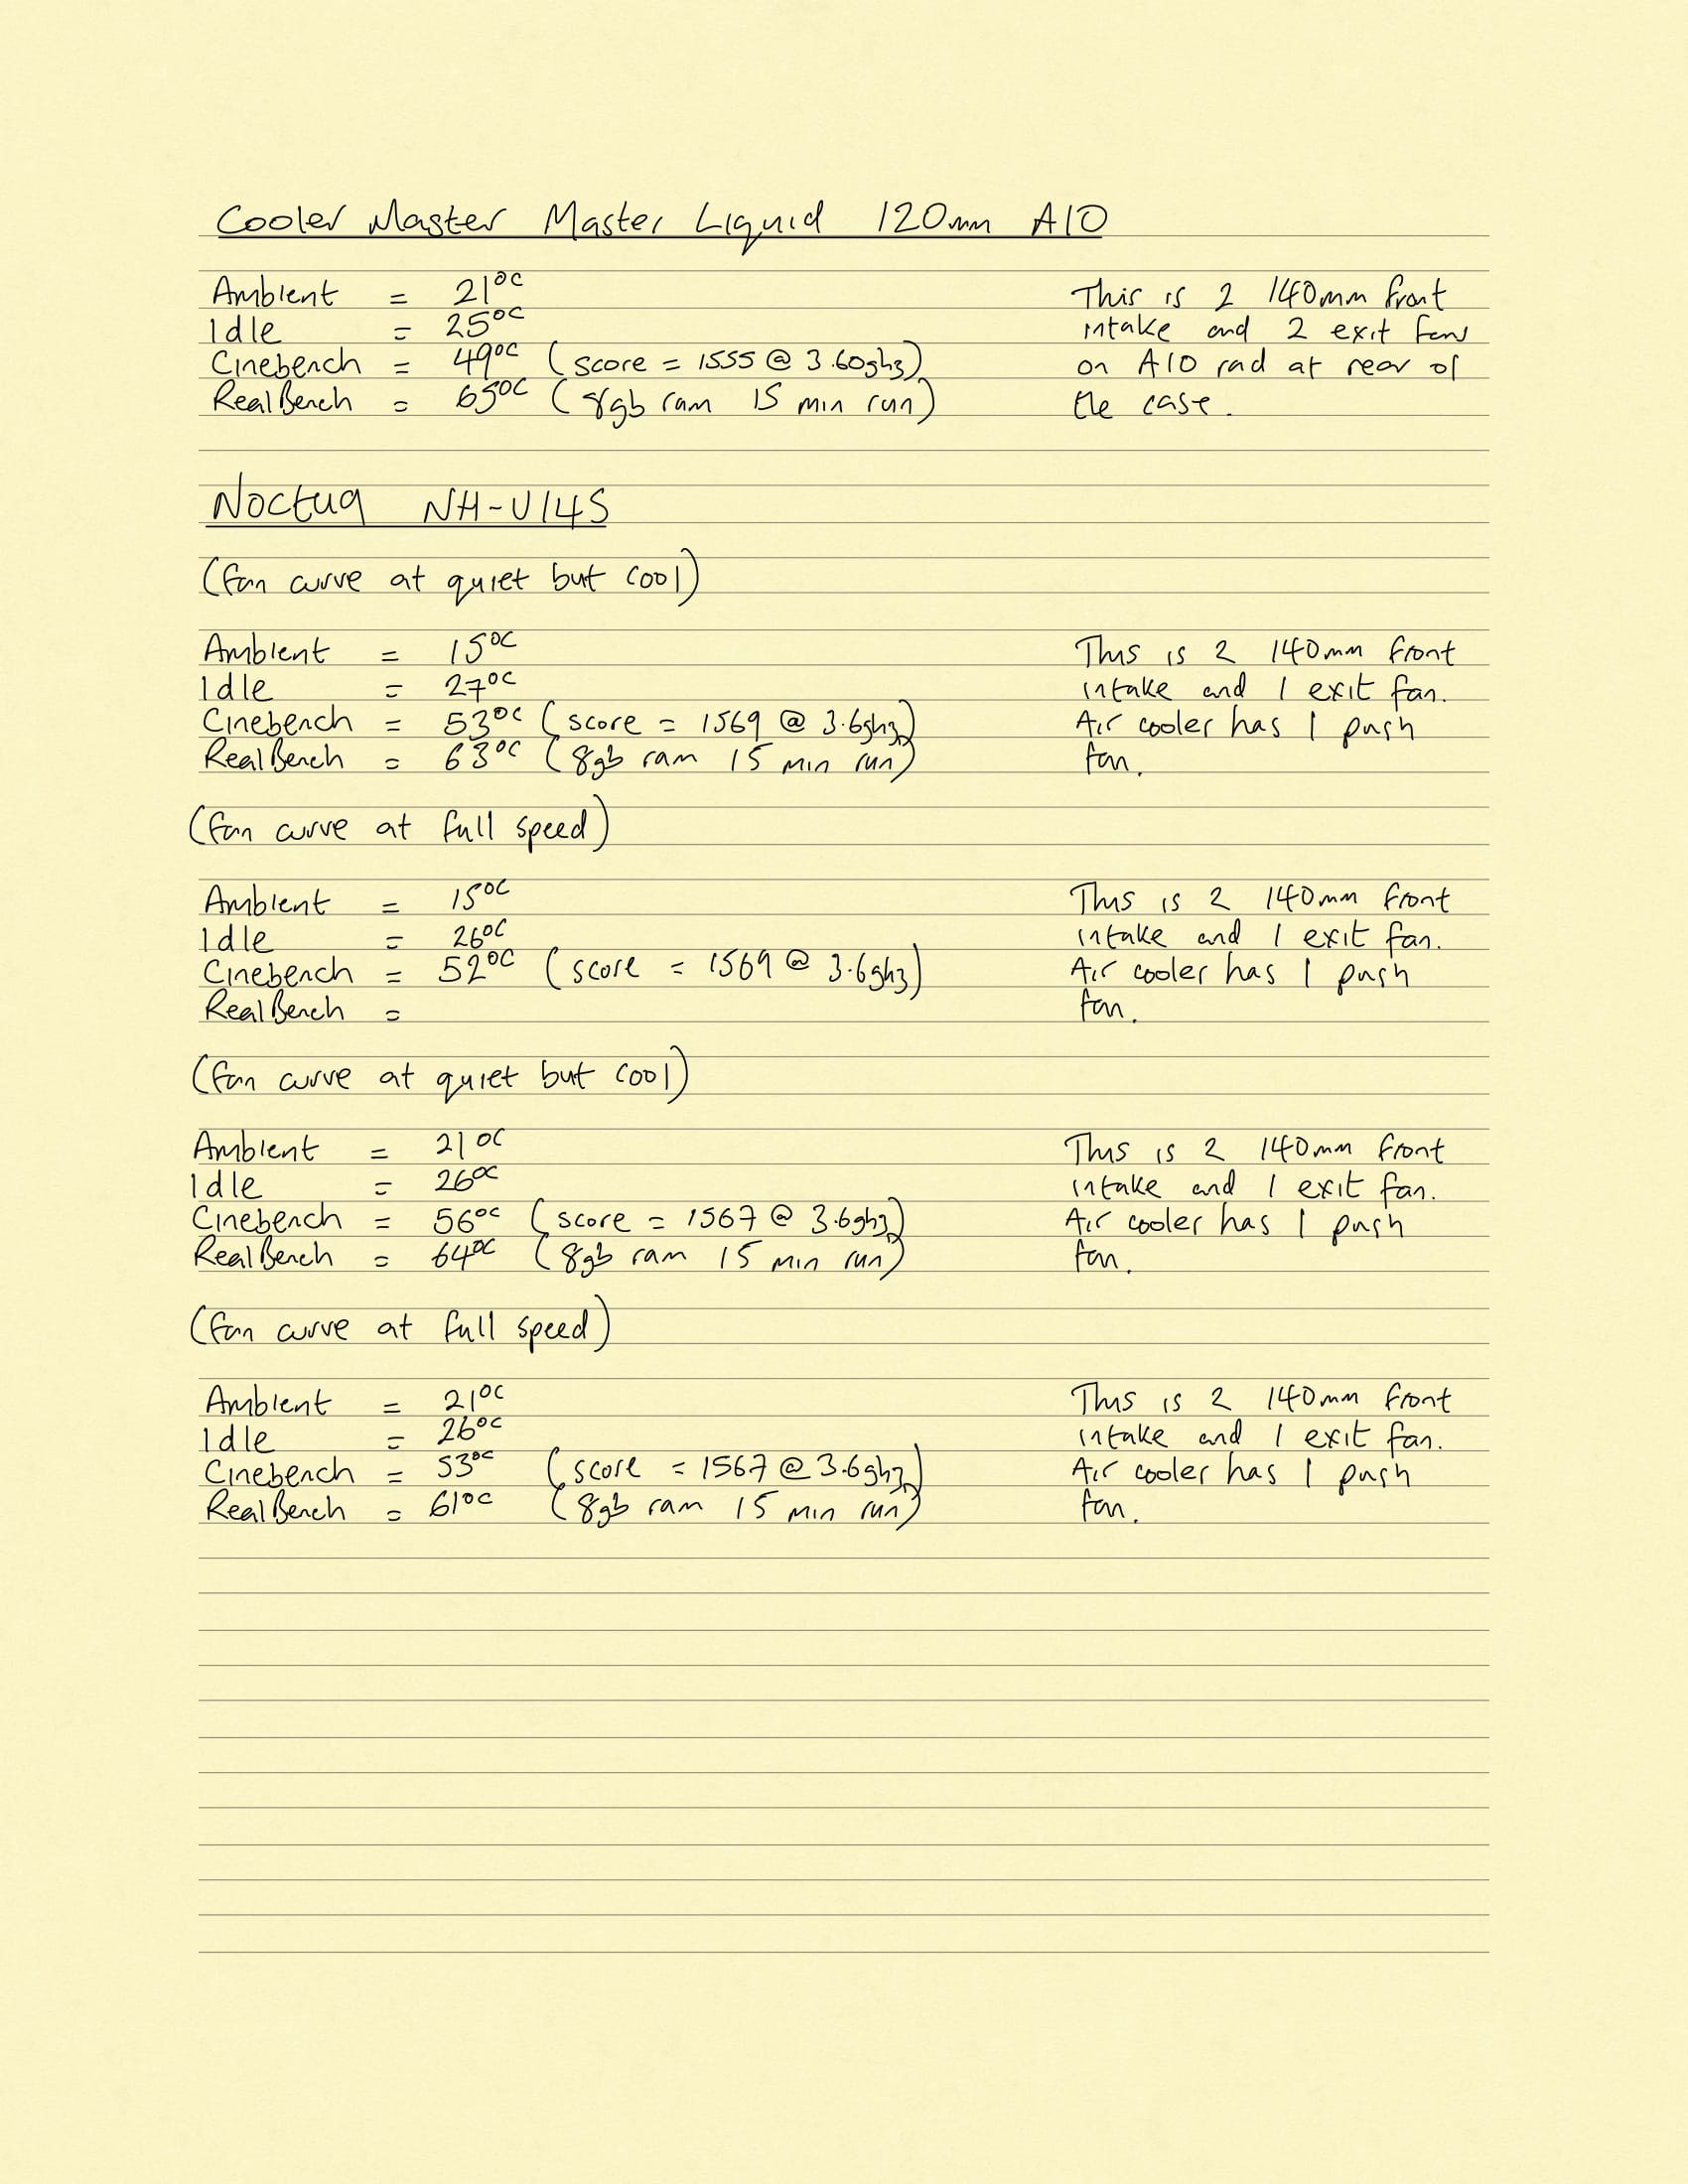 Cooler Master Master Liquid 120mm AIO
Ambient = 21°C
Idle = 25°C
Cinebench = 49°C (score = 1555 @ 3.60ghz)
RealBench = 65°C (8gb ram 15 min run)
This is 2 140mm front
intake and 2 exit fans
on AIO rad at rear of
the case.
Noctua NH-U14S
(fan curve at quiet but cool)
Ambient = 15°C
Idle = 27°C
Cinebench = 53°C (score = 1569 @ 3.6ghz)
RealBench = 63°C (8gb ram 15 min run)
This is 2 140mm front
intake and 1 exit fan.
Air cooler has 1 push
fan.
(fan curve at full speed)
Ambient = 15°C
Idle = 26°C
Cinebench = 52°C (score = 1569 @ 3.6ghz)
RealBench =
This is 2 140mm front
intake and 1 exit fan.
Air cooler has 1 push
fan.
(fan curve at quiet but cool)
Ambient = 21°C
Idle = 26°C
Cinebench = 56°C (score = 1567 @ 3.6ghz)
RealBench = 64°C (8gb ram 15 min run)
This is 2 140mm front
intake and 1 exit fan.
Air cooler has 1 push
fan.
(fan curve at full speed)
Ambient = 21°C
Idle = 26°C
Cinebench = 53°C (score = 1567 @ 3.6ghz)
RealBench = 61°C (8gb ram 15 min run)
This is 2 140mm front
intake and 1 exit fan.
Air cooler has 1 push
fan.